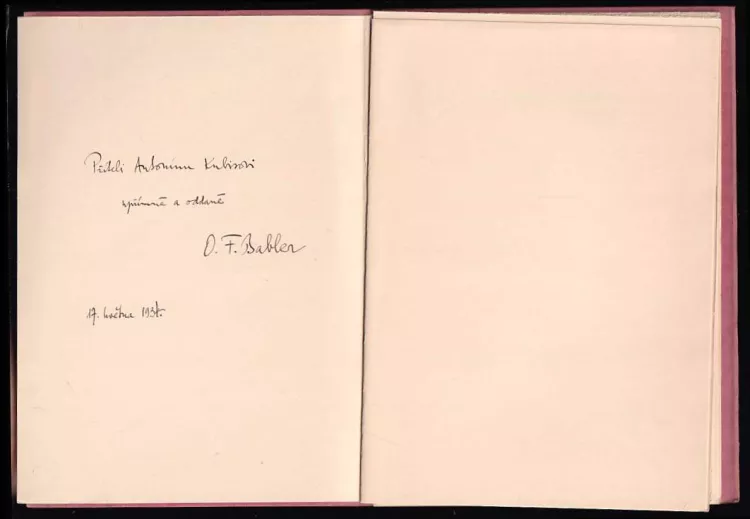 Příteli Antonínu Kubisovi
upřímně a oddaně
O. F. Babler
17. května 1937.